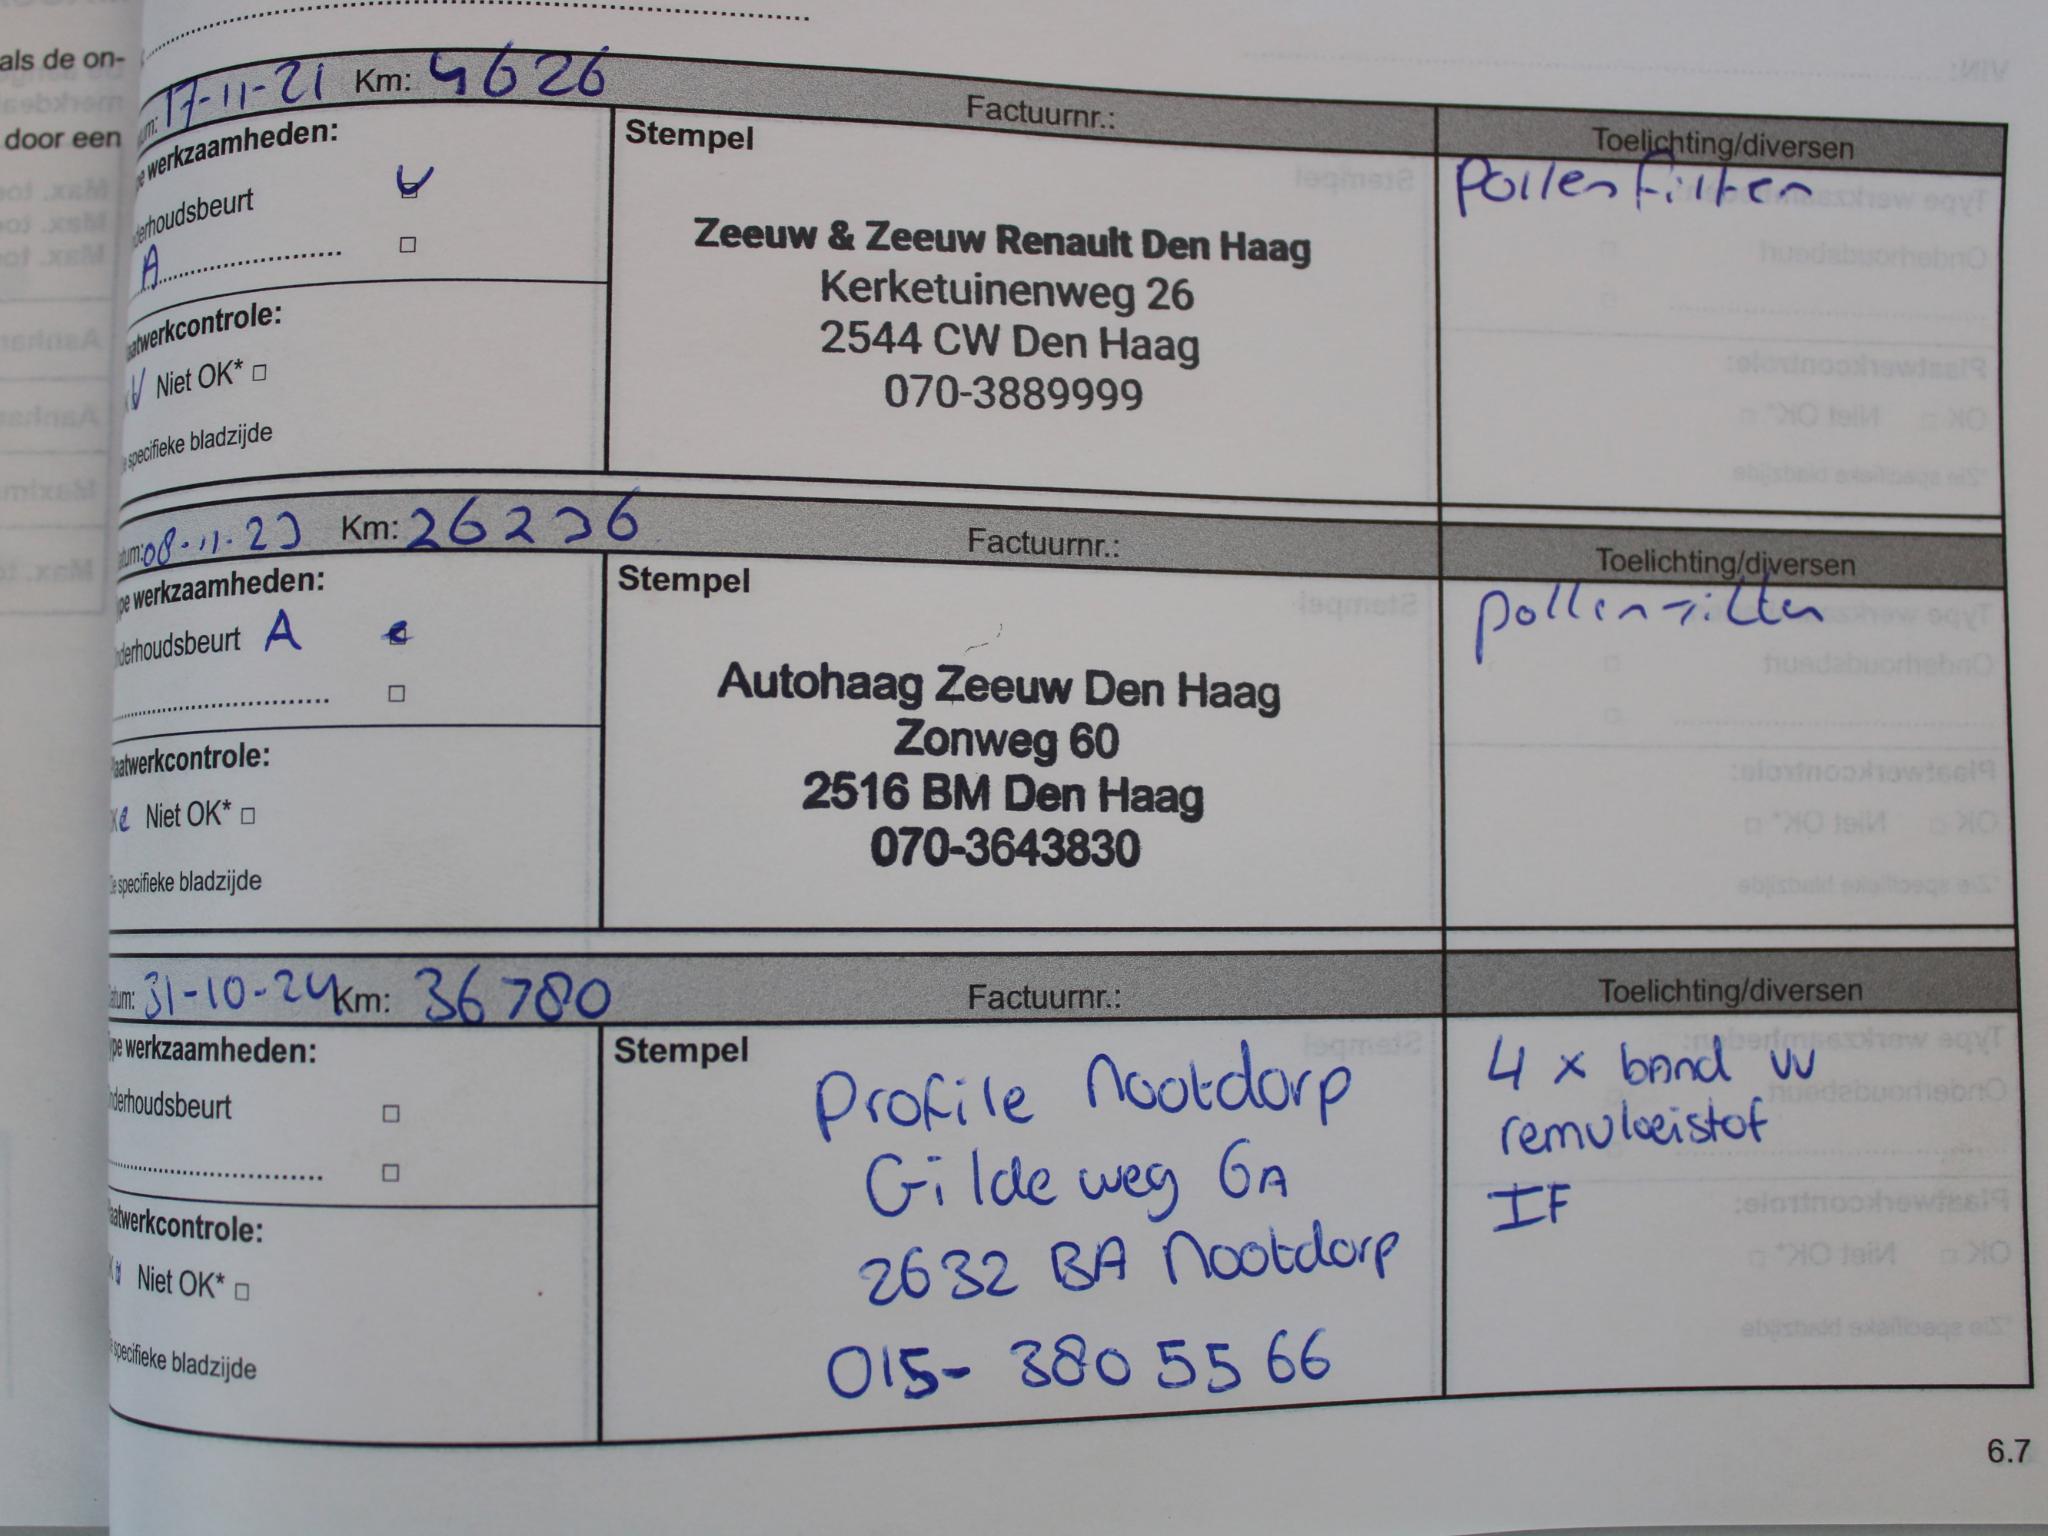 als de on-
door een
17-11-21 Km: 4626 Factuurnr.: Toelichting/diversen
werkzaamheden:
Stempel
pollenfilter
Zeeuw & Zeeuw Renault Den Haag
Kerketuinenweg 26
2544 CW Den Haag
070-3889999
derhoudsbeurt
A
aatwerkcontrole:
Niet OK*
specifieke bladzijde
08-11-23 Km: 26236 Factuurnr.: Toelichting/diversen
werkzaamheden:
Stempel
pollenfilter
nderhoudsbeurt A
Autohaag Zeeuw Den Haag
Zonweg 60
2516 BM Den Haag
070-3643830
aatwerkcontrole:
Niet OK*
specifieke bladzijde
31-10-24 Km: 36780 Factuurnr.: Toelichting/diversen
werkzaamheden:
Stempel
Profile Nootdorp
Gildeweg 6A
2632 BA Nootdorp
015-3805566
4 x band vv
remvloeistof
IF
nderhoudsbeurt
aatwerkcontrole:
Niet OK*
specifieke bladzijde
6.7